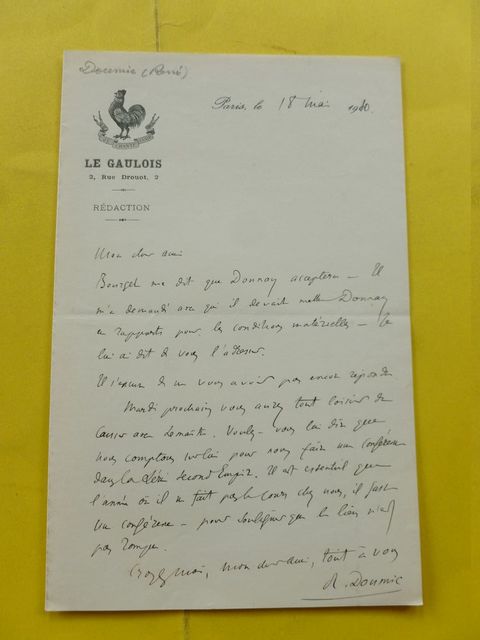 Doumic (René)
CHANTE
LE GAULOIS
2, Rue Drouot, 2
RÉDACTION
Paris, le 18 mai 1910.
Mon cher ami
Bourget me dit que Donnay acceptera – Il
m'a demandé avec qui il devait mettre Donnay
en rapports pour les conditions matérielles – Je
lui ai dit de vous l'adresser.
Il s'excuse de ne vous avoir pas encore répondu
Mardi prochain vous aurez tout loisir de
causer avec Lemaître. Voulez-vous lui dire que
nous comptons sur lui pour nous faire une conférence
dans la série Second Empire. Il est essentiel que
l'année où il ne fait pas le cours chez nous, il fasse
une conférence – pour souligner que le lien n'est
pas rompu.
Croyez moi, mon cher ami, tout à vous
R. Doumic